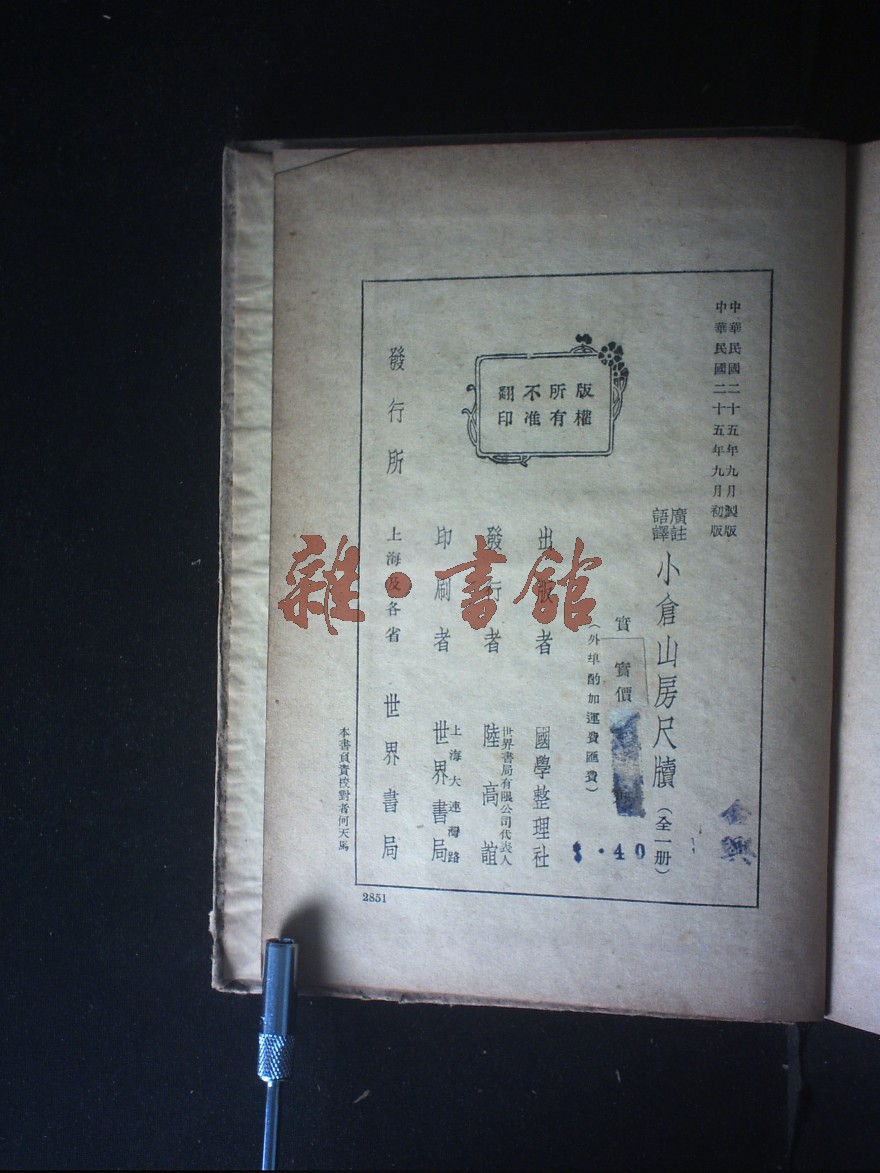 中華民國二十五年九月製版
中華民國二十五年九月初版
廣註
語譯
小倉山房尺牘（全一册）
實
實價
$.40
（外埠酌加運費匯費）
版權
所有
不准
翻印
出版者 國學整理社
發行者 世界書局有限公司代表人
陸高誼
印刷者 上海大連灣路
世界書局
發行所 上海及各省 世界書局
本書負責校對者何天馬
2851
雜·書館